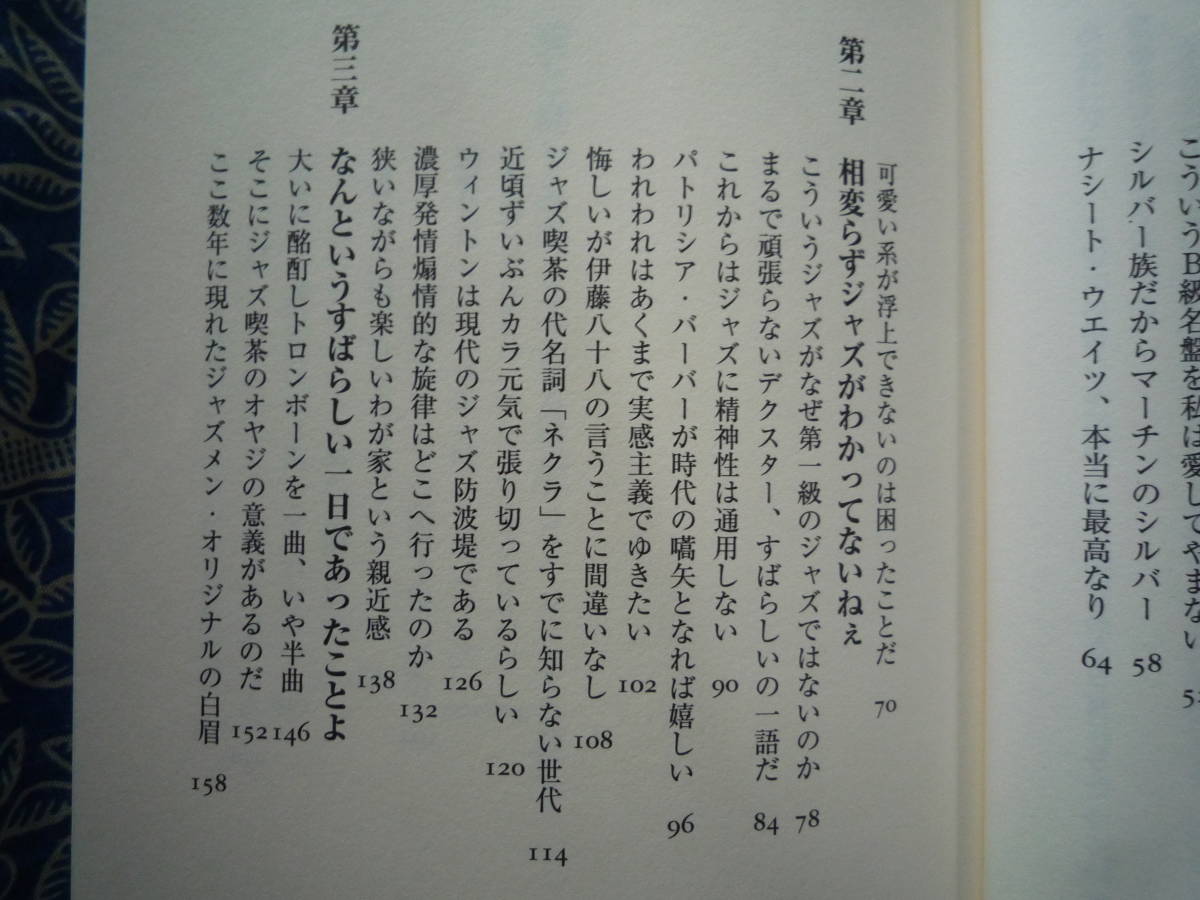 こういうB級名盤を私は愛してやまない
シルバー族だからマーチンのシルバー 58
ナシート・ウエイツ、本当に最高なり 64
可愛い系が浮上できないのは困ったことだ 70
第二章 相変らずジャズがわかってないねぇ
こういうジャズがなぜ第一級のジャズではないのか 78
まるで頑張らないデクスター、すばらしいの一語だ 84
これからはジャズに精神性は通用しない 90
パトリシア・バーバーが時代の嚆矢となれば嬉しい 96
われわれはあくまで実感主義でゆきたい 102
悔しいが伊藤八十八の言うことに間違いなし 108
ジャズ喫茶の代名詞「ネクラ」をすでに知らない世代 114
近頃ずいぶんカラ元気で張り切っているらしい 120
ウィントンは現代のジャズ防波堤である 126
濃厚発情煽情的な旋律はどこへ行ったのか 132
狭いながらも楽しいわが家という親近感 138
第三章 なんというすばらしい一日であったことよ
大いに酩酊しトロンボーンを一曲、いや半曲 146
そこにジャズ喫茶のオヤジの意義があるのだ 152
ここ数年に現れたジャズメン・オリジナルの白眉 158